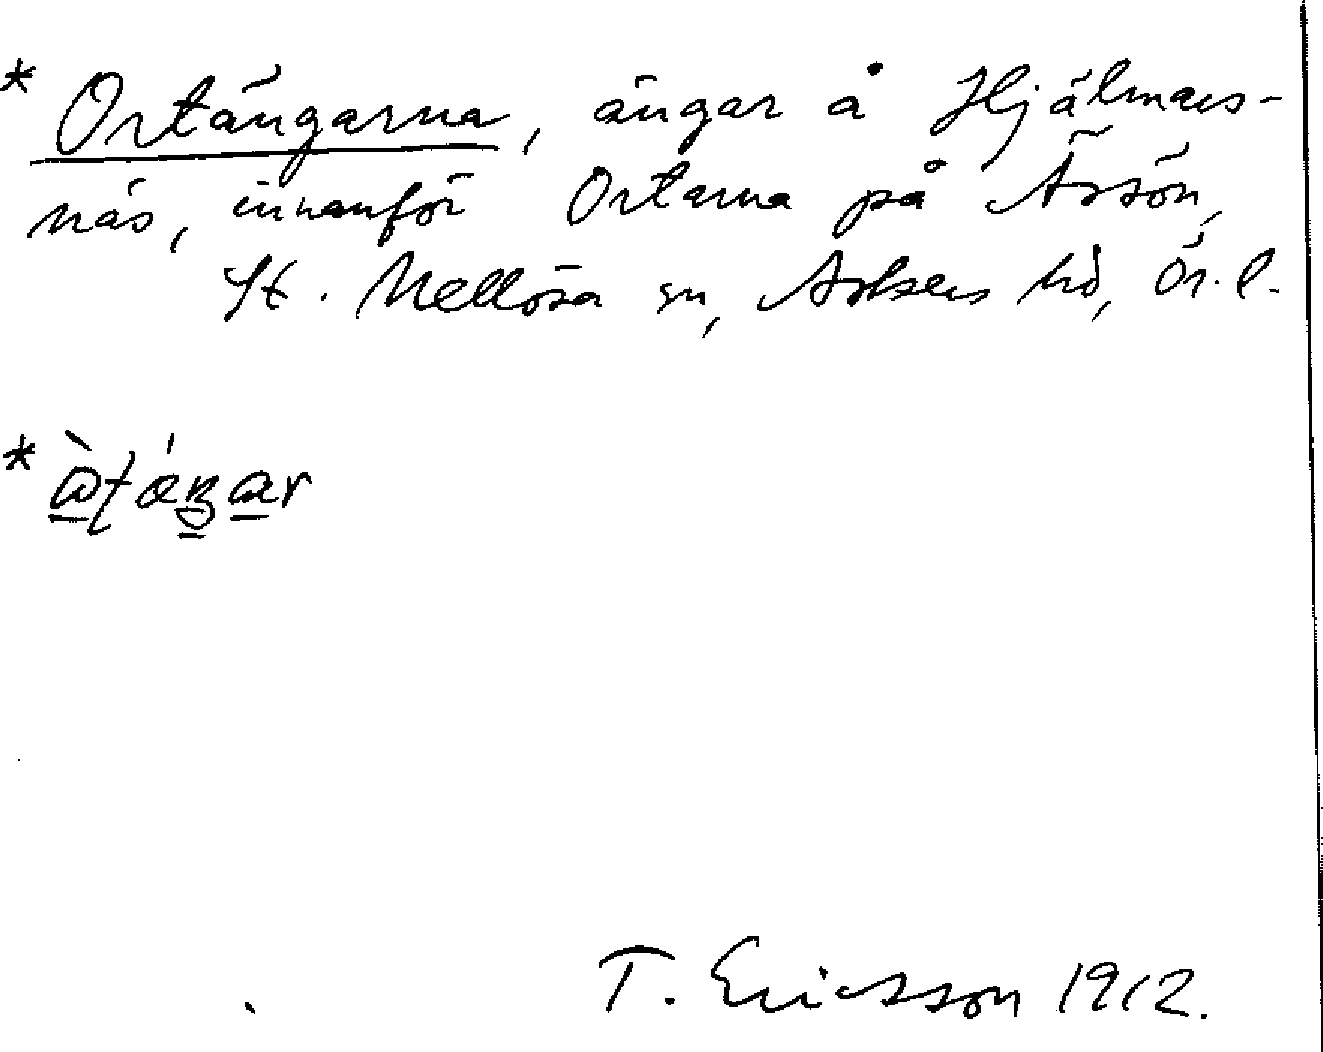 * Ortängarna, ängar å Hjälmars-
näs, innanför Ortarna på Äsön,
St. Mellösa sn, Askers hd, Ör. l.
*
T. Ericsson 1912.